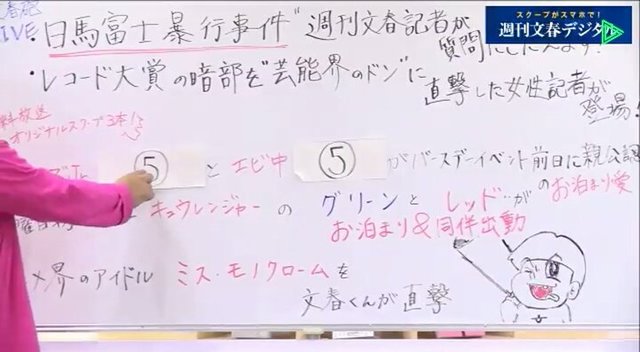 LIVE
・日馬富士暴行事件"週刊文春記者が
質問に
・レコード大賞の暗部を"芸能界のドン"に
直撃した女性記者が
登場!
スクープがスマホで!
週刊文春デジタル
料放送
オリジナルスクープ3本!
⑤ と エビ中 ⑤ がバースデーイベント前日に親公認
のお泊まり愛
キュウレンジャー の グリーン と レッド が
お泊まり&同伴出動
界のアイドル ミス・モノクロームを
文春くんが直撃